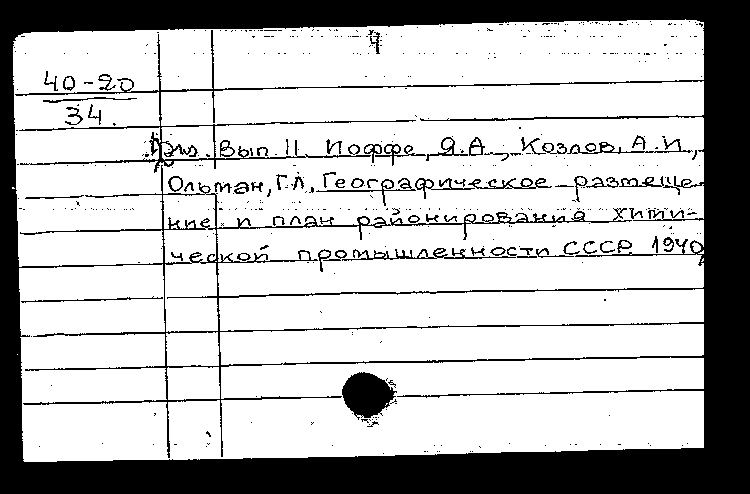 4
40-20
34.
Вып. II. Иоффе, Я.А., Козлов, А.И.,
Ольман, Г.Л. Географическое размеще-
ние и план районирования хими-
ческой промышленности СССР. 1940,